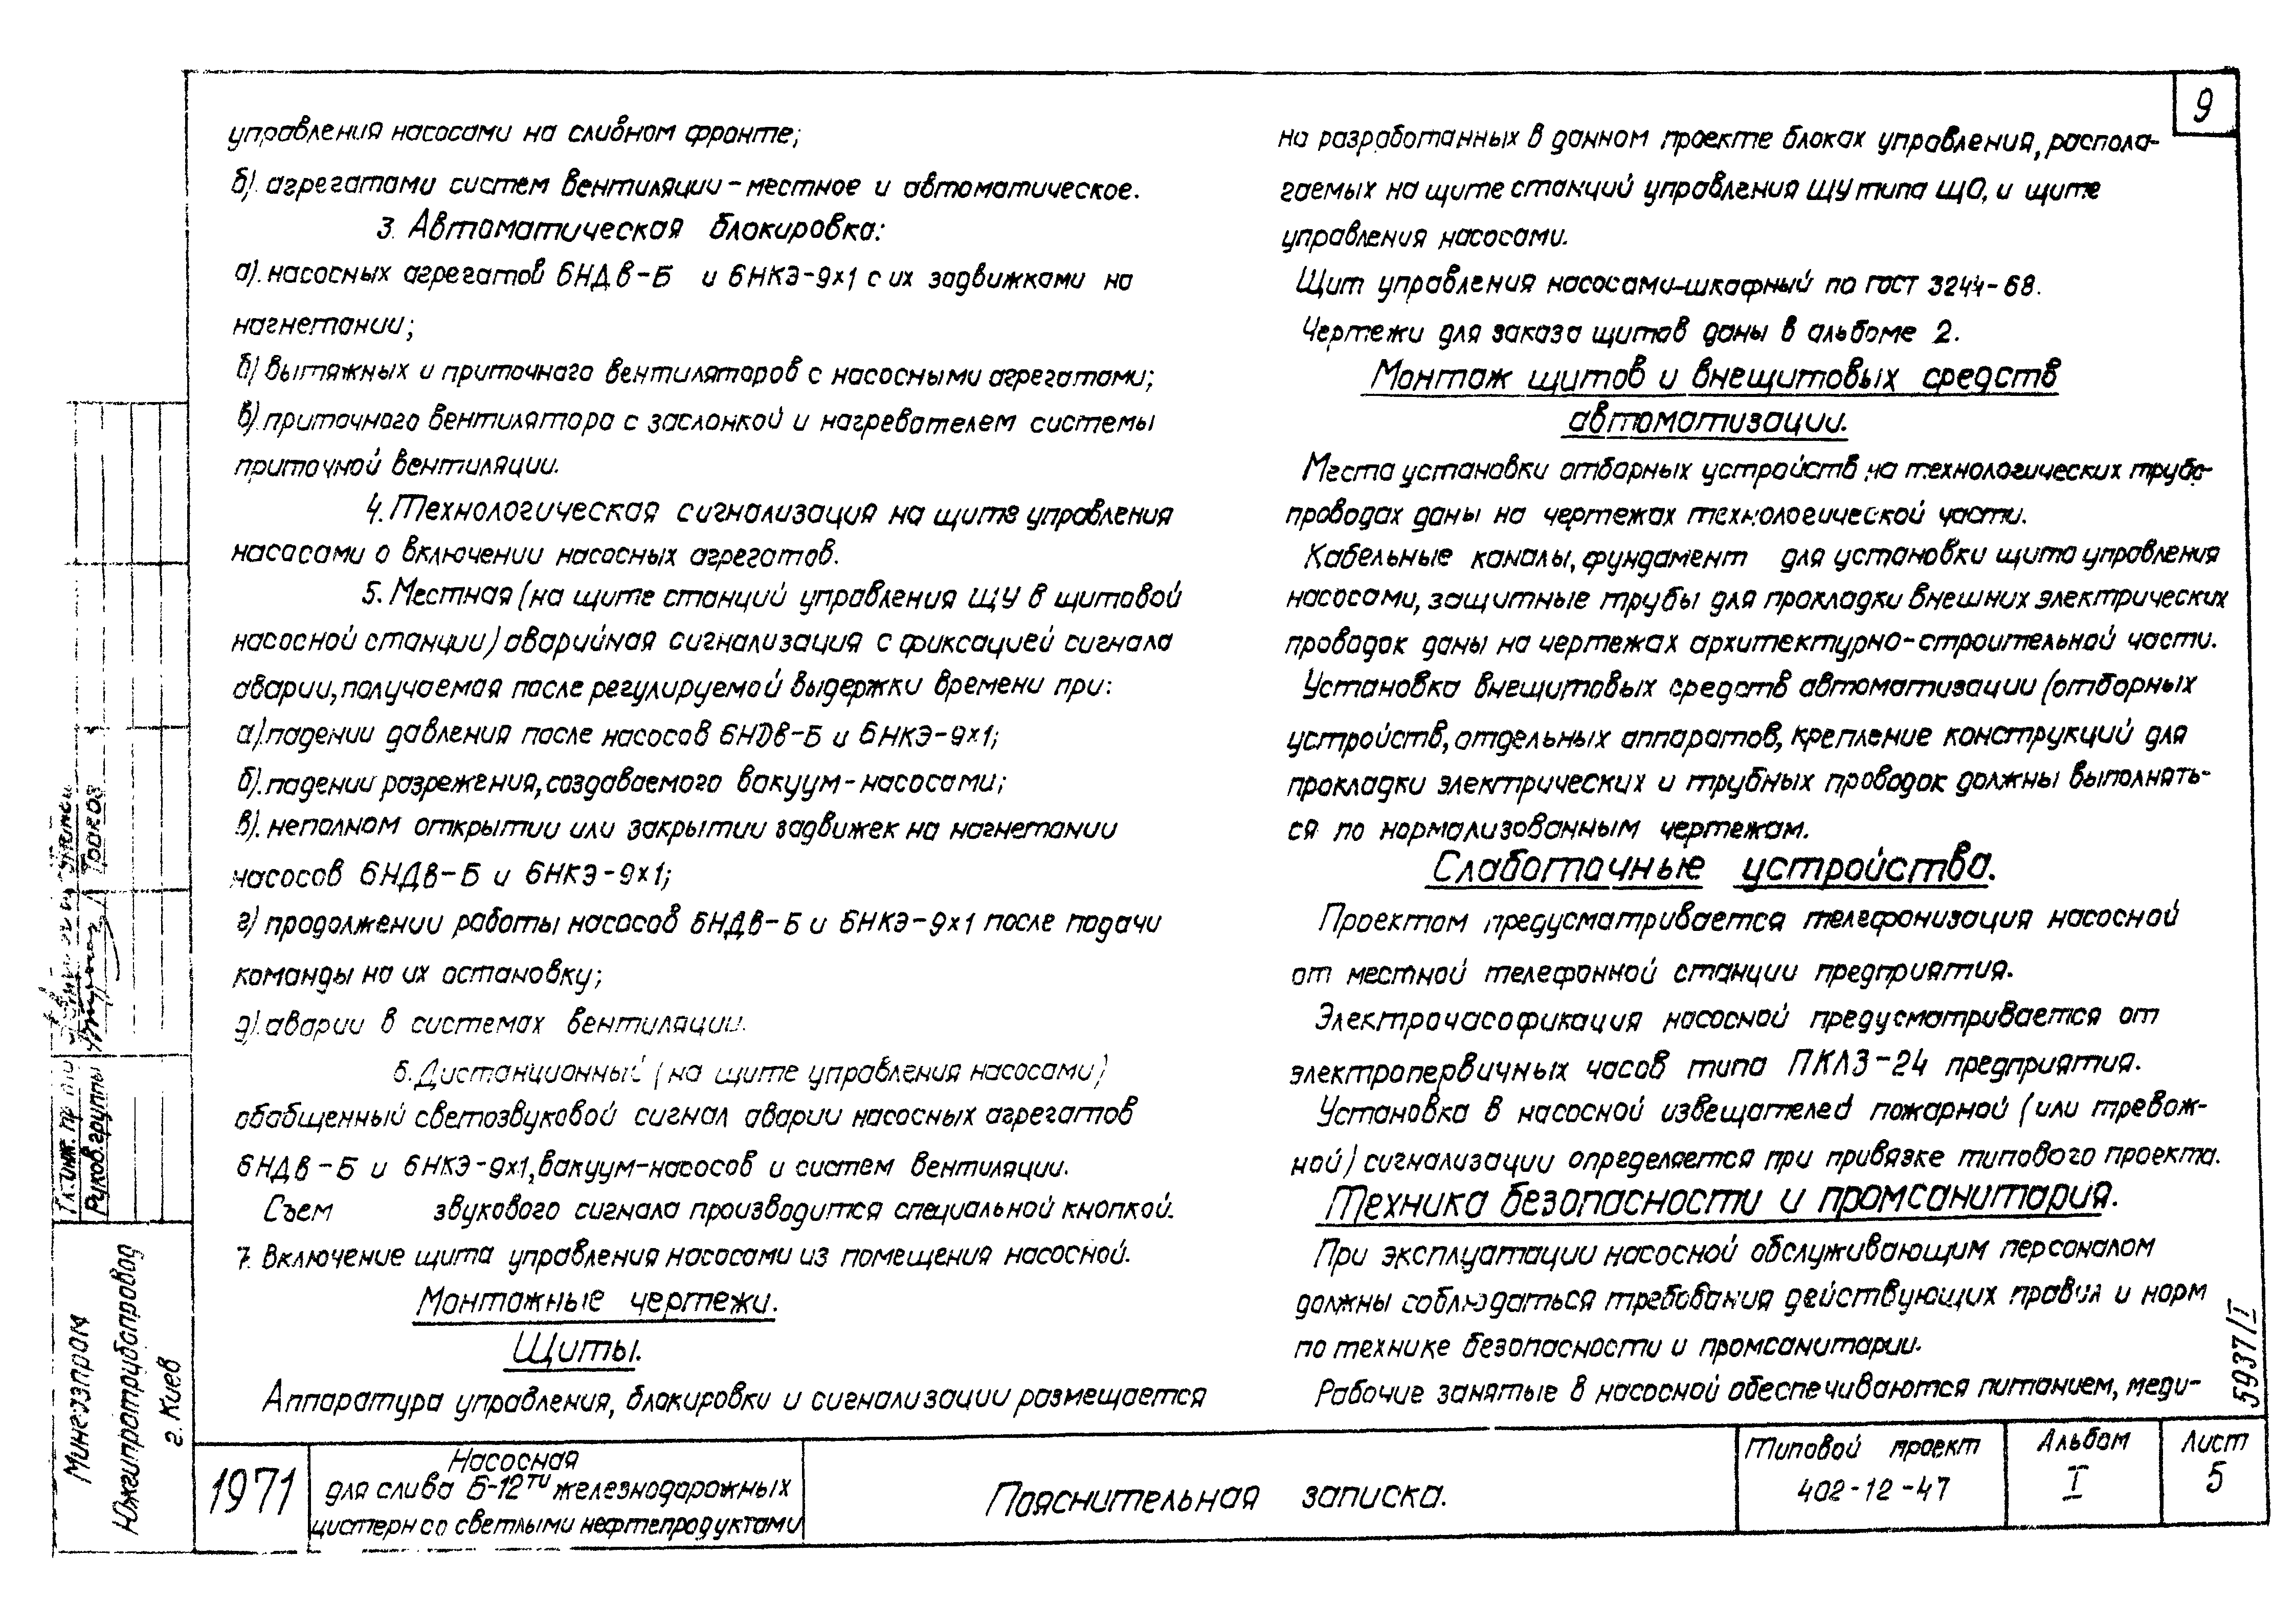 9
управления насосами на сливном фронте;
б). агрегатами систем вентиляции - местное и автоматическое.
3. Автоматическая блокировка:
а). насосных агрегатов 6НДв-Б и 6НКЭ-9х1 с их задвижками на
нагнетании;
б) вытяжных и приточного вентиляторов с насосными агрегатами;
в). приточного вентилятора с заслонкой и нагревателем системы
приточной вентиляции.
4. Технологическая сигнализация на щите управления
насосами о включении насосных агрегатов.
5. Местная (на щите станций управления ЩУ в щитовой
насосной станции) аварийная сигнализация с фиксацией сигнала
аварии, получаемая после регулируемой выдержки времени при:
а). падении давления после насосов 6НДв-Б и 6НКЭ-9х1;
б). падении разрежения, создаваемого вакуум-насосами;
в). неполном открытии или закрытии задвижек на нагнетании
насосов 6НДв-Б и 6НКЭ-9х1;
г) продолжении работы насосов 6НДв-Б и 6НКЭ-9х1 после подачи
команды на их остановку;
д). аварии в системах вентиляции.
6. Дистанционный (на щите управления насосами)
обобщенный светозвуковой сигнал аварии насосных агрегатов
6НДв-Б и 6НКЭ-9х1, вакуум-насосов и систем вентиляции.
Съем звукового сигнала производится специальной кнопкой.
7. Включение щита управления насосами из помещения насосной.
Монтажные чертежи.
Щиты.
Аппаратура управления, блокировки и сигнализации размещается
на разработанных в данном проекте блоках управления, распола-
гаемых на щите станций управления ЩУ типа ЩО, и щите
управления насосами.
Щит управления насосами-шкафный по ГОСТ 3244-68.
Чертежи для заказа щитов даны в альбоме 2.
Монтаж щитов и внещитовых средств
автоматизации.
Места установки отборных устройств на технологических трубо-
проводах даны на чертежах технологической части.
Кабельные каналы, фундамент для установки щита управления
насосами, защитные трубы для прокладки внешних электрических
проводок даны на чертежах архитектурно-строительной части.
Установка внещитовых средств автоматизации (отборных
устройств, отдельных аппаратов, крепление конструкций для
прокладки электрических и трубных проводок должны выполнять-
ся по нормализованным чертежам.
Слаботочные устройства.
Проектом предусматривается телефонизация насосной
от местной телефонной станции предприятия.
Электрочасофикация насосной предусматривается от
электропервичных часов типа ПКЛ3-24 предприятия.
Установка в насосной извещателей пожарной (или тревож-
ной) сигнализации определяется при привязке типового проекта.
Техника безопасности и промсанитария.
При эксплуатации насосной обслуживающим персоналом
должны соблюдаться требования действующих правил и норм
по технике безопасности и промсанитарии.
Рабочие занятые в насосной обеспечиваются питанием, меди-
5937/I
Гл. инж. пр-та
Руков. группы
Мингазпром
Южгипротрубопровод
г. Киев
1971
Насосная
для слива 6-12ти железнодорожных
цистерн со светлыми нефтепродуктами
Пояснительная записка.
Типовой проект
402-12-47
Альбом
I
Лист
5